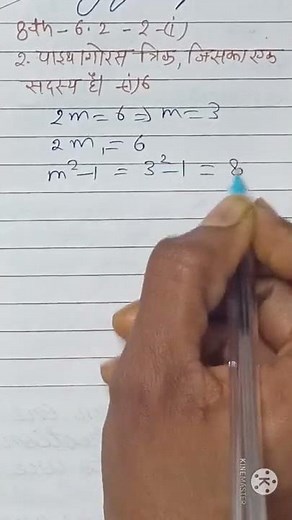 8th - 6.2 - 2 - (i)
2. पाइथागोरस त्रिक, जिसका एक
सदस्य है। - (i) 6
2m = 6 ⇒ m = 3
2m = 6
m² - 1 = 3² - 1 = 8
KINEMASTER